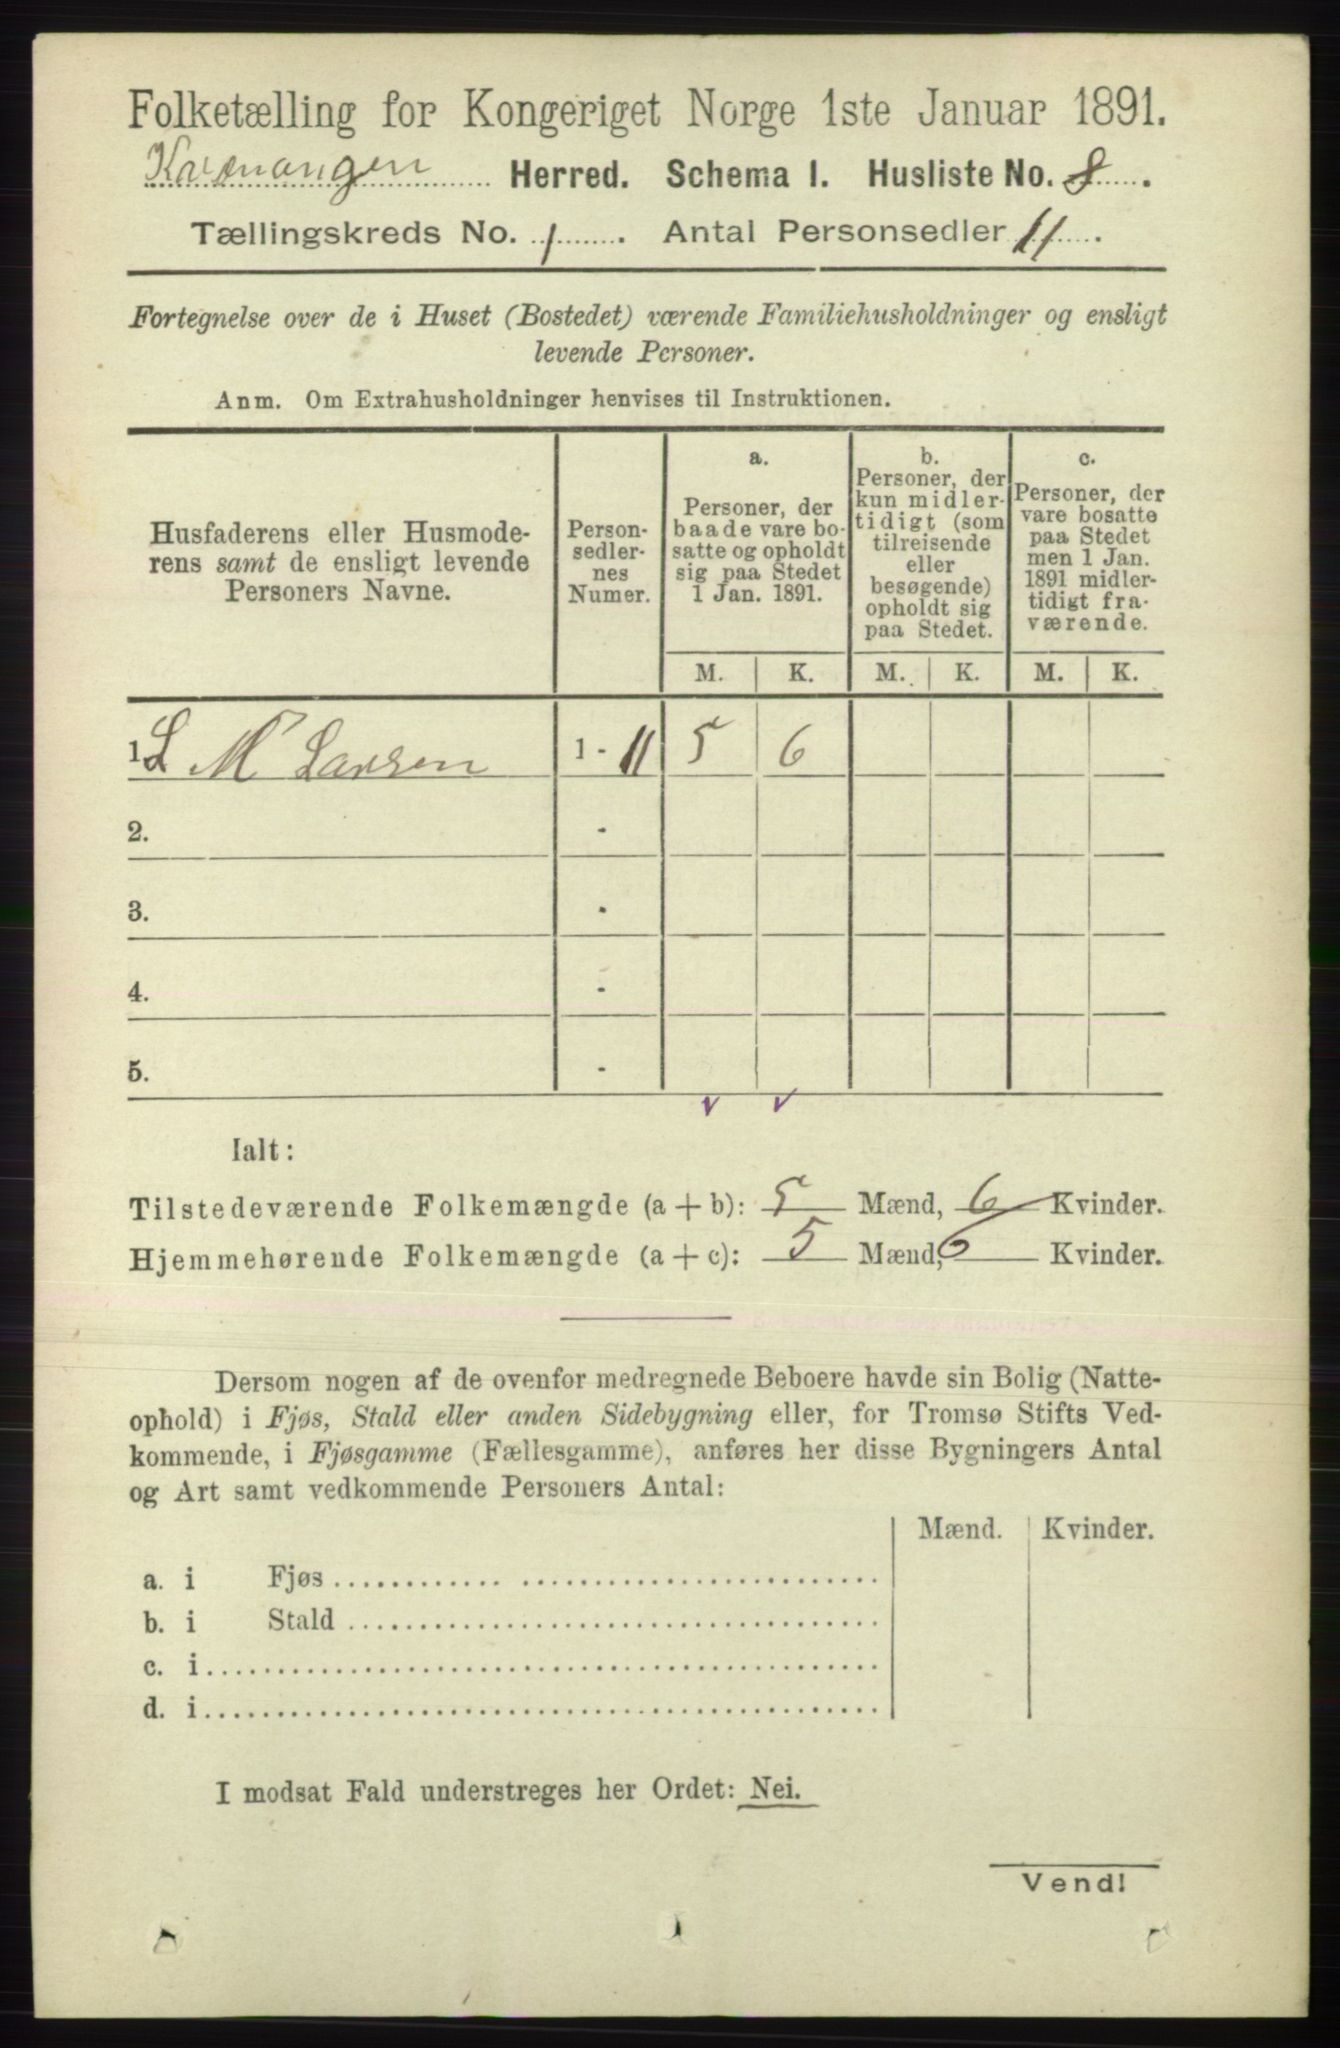 Folketælling for Kongeriget Norge 1ste Januar 1891.
Kvænangen Herred. Schema I. Husliste No. 8.
Tællingskreds No. 1. Antal Personsedler 11.
Fortegnelse over de i Huset (Bostedet) værende Familiehusholdninger og ensligt
levende Personer.
Anm. Om Extrahusholdninger henvises til Instruktionen.
Husfaderens eller Husmode-
rens samt de ensligt levende
Personers Navne.
Person-
sedler-
nes
Numer.
a.
Personer, der
baade vare bo-
satte og opholdt
sig paa Stedet
1 Jan. 1891.
b.
Personer, der
kun midler-
tidigt (som
tilreisende
eller
besøgende)
opholdt sig
paa Stedet.
c.
Personer, der
vare bosatte
paa Stedet
men 1 Jan.
1891 midler-
tidigt fra-
værende.
M. K. M. K. M. K.
1. L M Larsen 1 - 11 5 6
2. -
3. -
4. -
5. -
Ialt:
Tilstedeværende Folkemængde (a + b): 5 Mænd, 6 Kvinder.
Hjemmehørende Folkemængde (a + c): 5 Mænd, 6 Kvinder.
Dersom nogen af de ovenfor medregnede Beboere havde sin Bolig (Natte-
ophold) i Fjøs, Stald eller anden Sidebygning eller, for Tromsø Stifts Ved-
kommende, i Fjøsgamme (Fællesgamme), anføres her disse Bygningers Antal
og Art samt vedkommende Personers Antal:
Mænd. Kvinder.
a. i Fjøs
b. i Stald
c. i
d. i
I modsat Fald understreges her Ordet: Nei.
Vend!